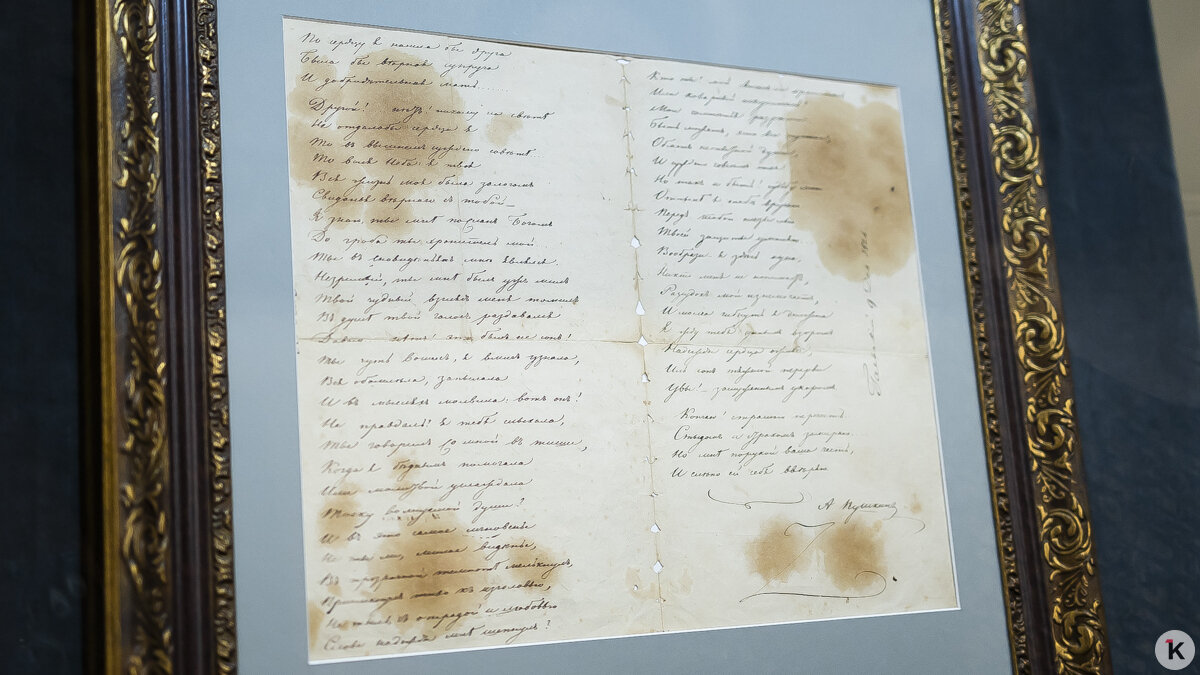 По сердцу я нашла бы друга
Была бы вѣрная супруга
И добродѣтельная мать......
Другой! нѣтъ! никому на свѣтѣ
Не отдала бы сердца я
То въ вышнемъ суждено совѣтѣ
То воля Неба я твоя
Вся жизнь моя была залогомъ
Свиданья вѣрнаго съ тобой
Я знаю, ты мнѣ посланъ Богомъ
До гроба ты хранитель мой...
Ты въ сновидѣньяхъ мнѣ являлся
Незримый, ты мнѣ былъ ужъ милъ
Твой чудный взглядъ меня томилъ
Въ душѣ твой голосъ раздавался
Давно нѣтъ! это былъ не сонъ!
Ты чуть вошелъ, я вмигъ узнала,
Вся обомлѣла, запылала
И въ мысляхъ молвила: вотъ онъ!
Не правдаль! я тебя слыхала,
Ты говорилъ со мной въ тиши,
Когда я бѣднымъ помогала
Или молитвой услаждала
Тоску волнуемой души?
И въ это самое мгновенье
Не ты ли, милое видѣнье,
Въ прозрачной темнотѣ мелькнулъ,
Приникнулъ тихо къ изголовью,
Не ты ль съ отрадой и любовью
Слова надежды мнѣ шепнулъ?
Кто ты! мой
Или коварный искуситель!
Мои сомнѣнья разрѣши
Быть можетъ, это все пустое,
Обманъ неопытной души,
И суждено совсѣмъ иное
Но такъ и быть! судьбу мою
Отнынѣ я тебѣ вручаю
Передъ тобою слезы лью
Твоей защиты умоляю...
Вообрази я здѣсь одна,
Никто меня не понимаетъ,
Разсудокъ мой изнемогаетъ,
И молча гибнуть я должна
Я жду тебя единымъ взоромъ
Надежды сердца оживи,
Иль сонъ тяжелой перерви
Увы! заслуженнымъ укоромъ
Кончаю! страшно перечесть
Стыдомъ и страхомъ замираю
Но мнѣ порукой ваша честь,
И смѣло ей себя ввѣряю
А Пушкинъ
K